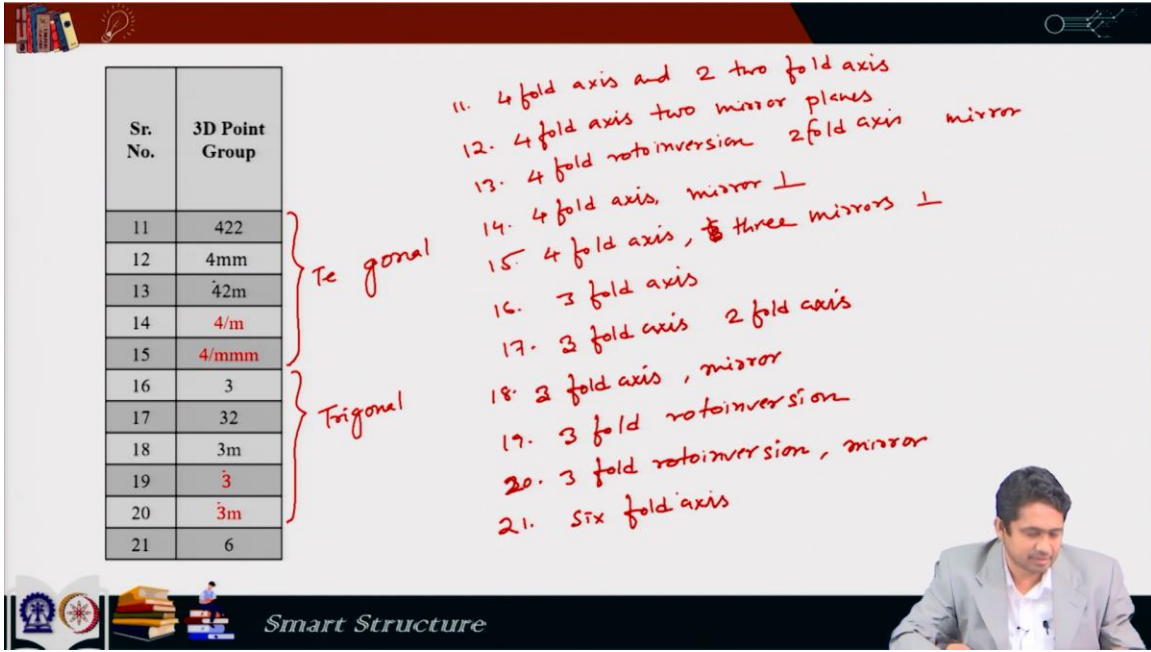 Sr. No.
3D Point Group
11 422
12 4mm
13 4̇2m
14 4/m
15 4/mmm
16 3
17 32
18 3m
19 3̇
20 3̇m
21 6
Te gonal
Trigonal
11. 4 fold axis and 2 two fold axis
12. 4 fold axis two mirror planes
13. 4 fold rotoinversion 2fold axis mirror
14. 4 fold axis, mirror ⊥
15. 4 fold axis, three mirrors ⊥
16. 3 fold axis
17. 3 fold axis 2 fold axis
18. 3 fold axis, mirror
19. 3 fold rotoinversion
20. 3 fold rotoinversion, mirror
21. six fold axis
Smart Structure